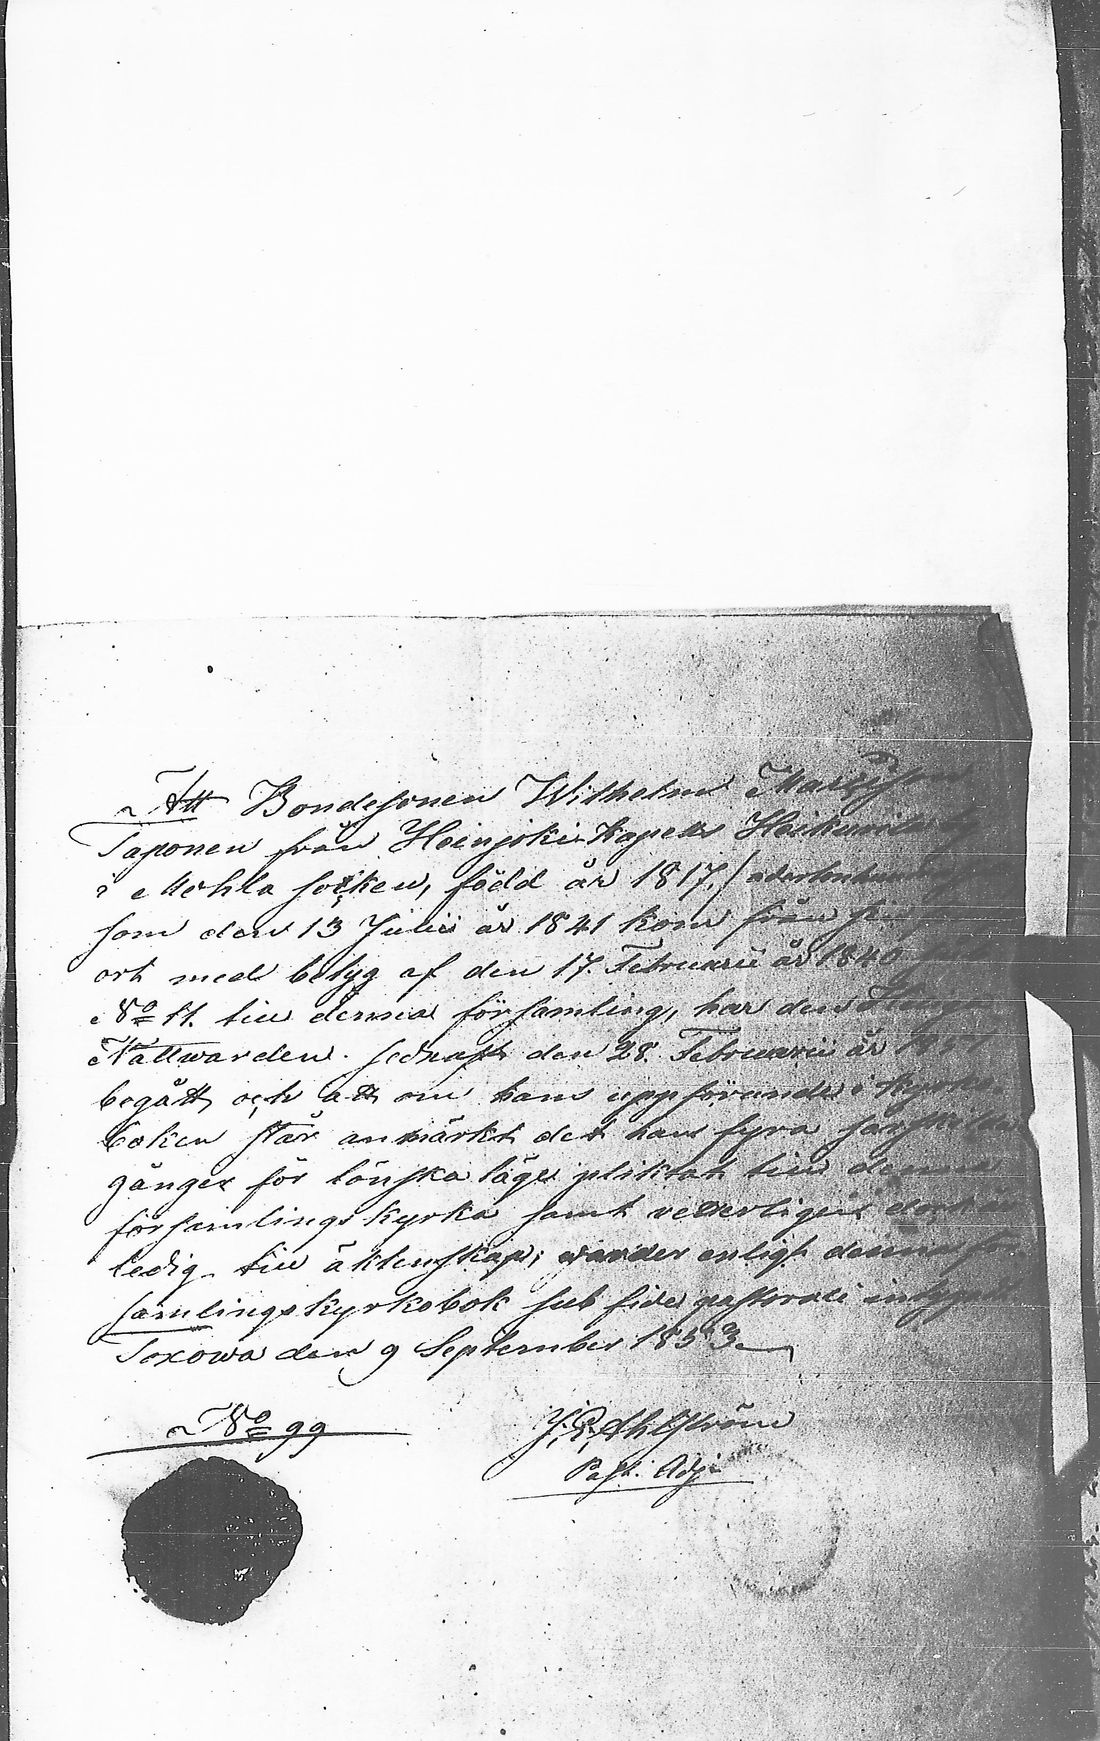 Att Bondesonen Wilhelm
Taponen från Heinjoki Kapells
i Mohla socken, född år 1817,
som den 13 Julii år 1841 kom från
ort med betyg af den 17. Februarii år 1840
No 11. till denna församling, har den
Nattwarden sednast den 28. Februarii år
begått, och att om hans uppförande i
boken står anmärkt det han fyra särskilta
gånger för lönska läge pliktat till denna
församlings kyrka samt vederligen
ledig till äktenskap; warder enligt denna
samlings kyrkobok sub fide pastorali
Toxowa den 9 September 1853.
No 99
J. E. Ahlström
Past. Adj.